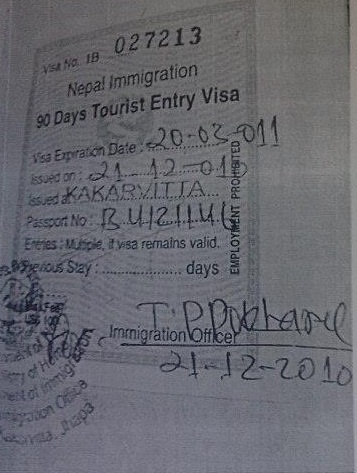 Visa No. 1B 027213
Nepal Immigration
90 Days Tourist Entry Visa
Visa Expiration Date: 20-03-011
Issued on: 21.12-010
Issued at KAKARVITTA
Passport No:
Entries: Multiple, if visa remains valid.
Previous Stay: days
EMPLOYMENT PROHIBITED
Immigration Officer
21-12-2010
Immigration Office
Jhapa